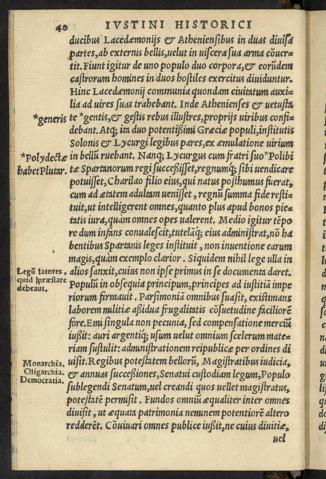 40 IVSTINI HISTORICI
ducibus Lacedæmonijs & Atheniensibus in duas diuisa
partes, ab externis bellis, uelut in uiscera sua arma cõuer-
tit. Fiunt igitur de uno populo duo corpora, & eorũdem
castrorum homines in duos hostiles exercitus diuiduntur.
Hinc Lacedæmonij communia quondam ciuitatum auxi-
lia ad uires suas trahebant. Inde Athenienses & uetusta
*generis
te *gentis, & gestis rebus illustres, proprijs uiribus confi-
debant. Atq; ita duo potentissimi Græciæ populi, institutis
Solonis & Lycurgi legibus pares, ex æmulatione uirium
*Polydectæ
in bellũ ruebant. Nanq; Lycurgus cum fratri suo *Polibi
habet Plutar.
tæ Spartanorum regi successisset, regnumq; sibi uendicare
potuisset, Charilao filio eius, qui natus posthumus fuerat,
cum ad ætatem adultam uenisset, regnũ summa fide resti-
tuit, ut intelligerent omnes, quanto plus apud bonos pie-
tatis iura, quam omnes opes ualerent. Medio igitur tẽpo
re dum infans conualescit, tutelãq; eius administrat, nõ ha
bentibus Spartanis leges instituit, non inuentione earum
magis, quàm exemplo clarior. Siquidem nihil lege ulla in
Legũ latores,
alios sanxit, cuius non ipse primus in se documenta daret.
quid præstare
Populũ in obsequia principum, principes ad iustitiã impe
debeant.
riorum firmauit. Parsimoniã omnibus suasit, existimans
laborem militiæ assidua frugalitatis cõsuetudine faciliorẽ
fore. Emi singula non pecunia, sed compensatione merciũ
iußit: auri argentiq; usum uelut omnium scelerum mate-
riam sustulit: administrationem reipublicæ per ordines di
Monarchia.
uisit. Regibus potestatem bellorũ, Magistratibus iudicia,
Oligarchia.
& annuas successiones, Senatui custodiam legum, Populo
Democratia.
sublegendi Senatum, uel creandi quos uellet magistratus,
potestatẽ permisit. Fundos omniũ æqualiter inter omnes
diuisit, ut æquata patrimonia neminem potentiorẽ altero
redderẽt. Cõuiuari omnes publice iußit, ne cuius diuitiæ,
uel